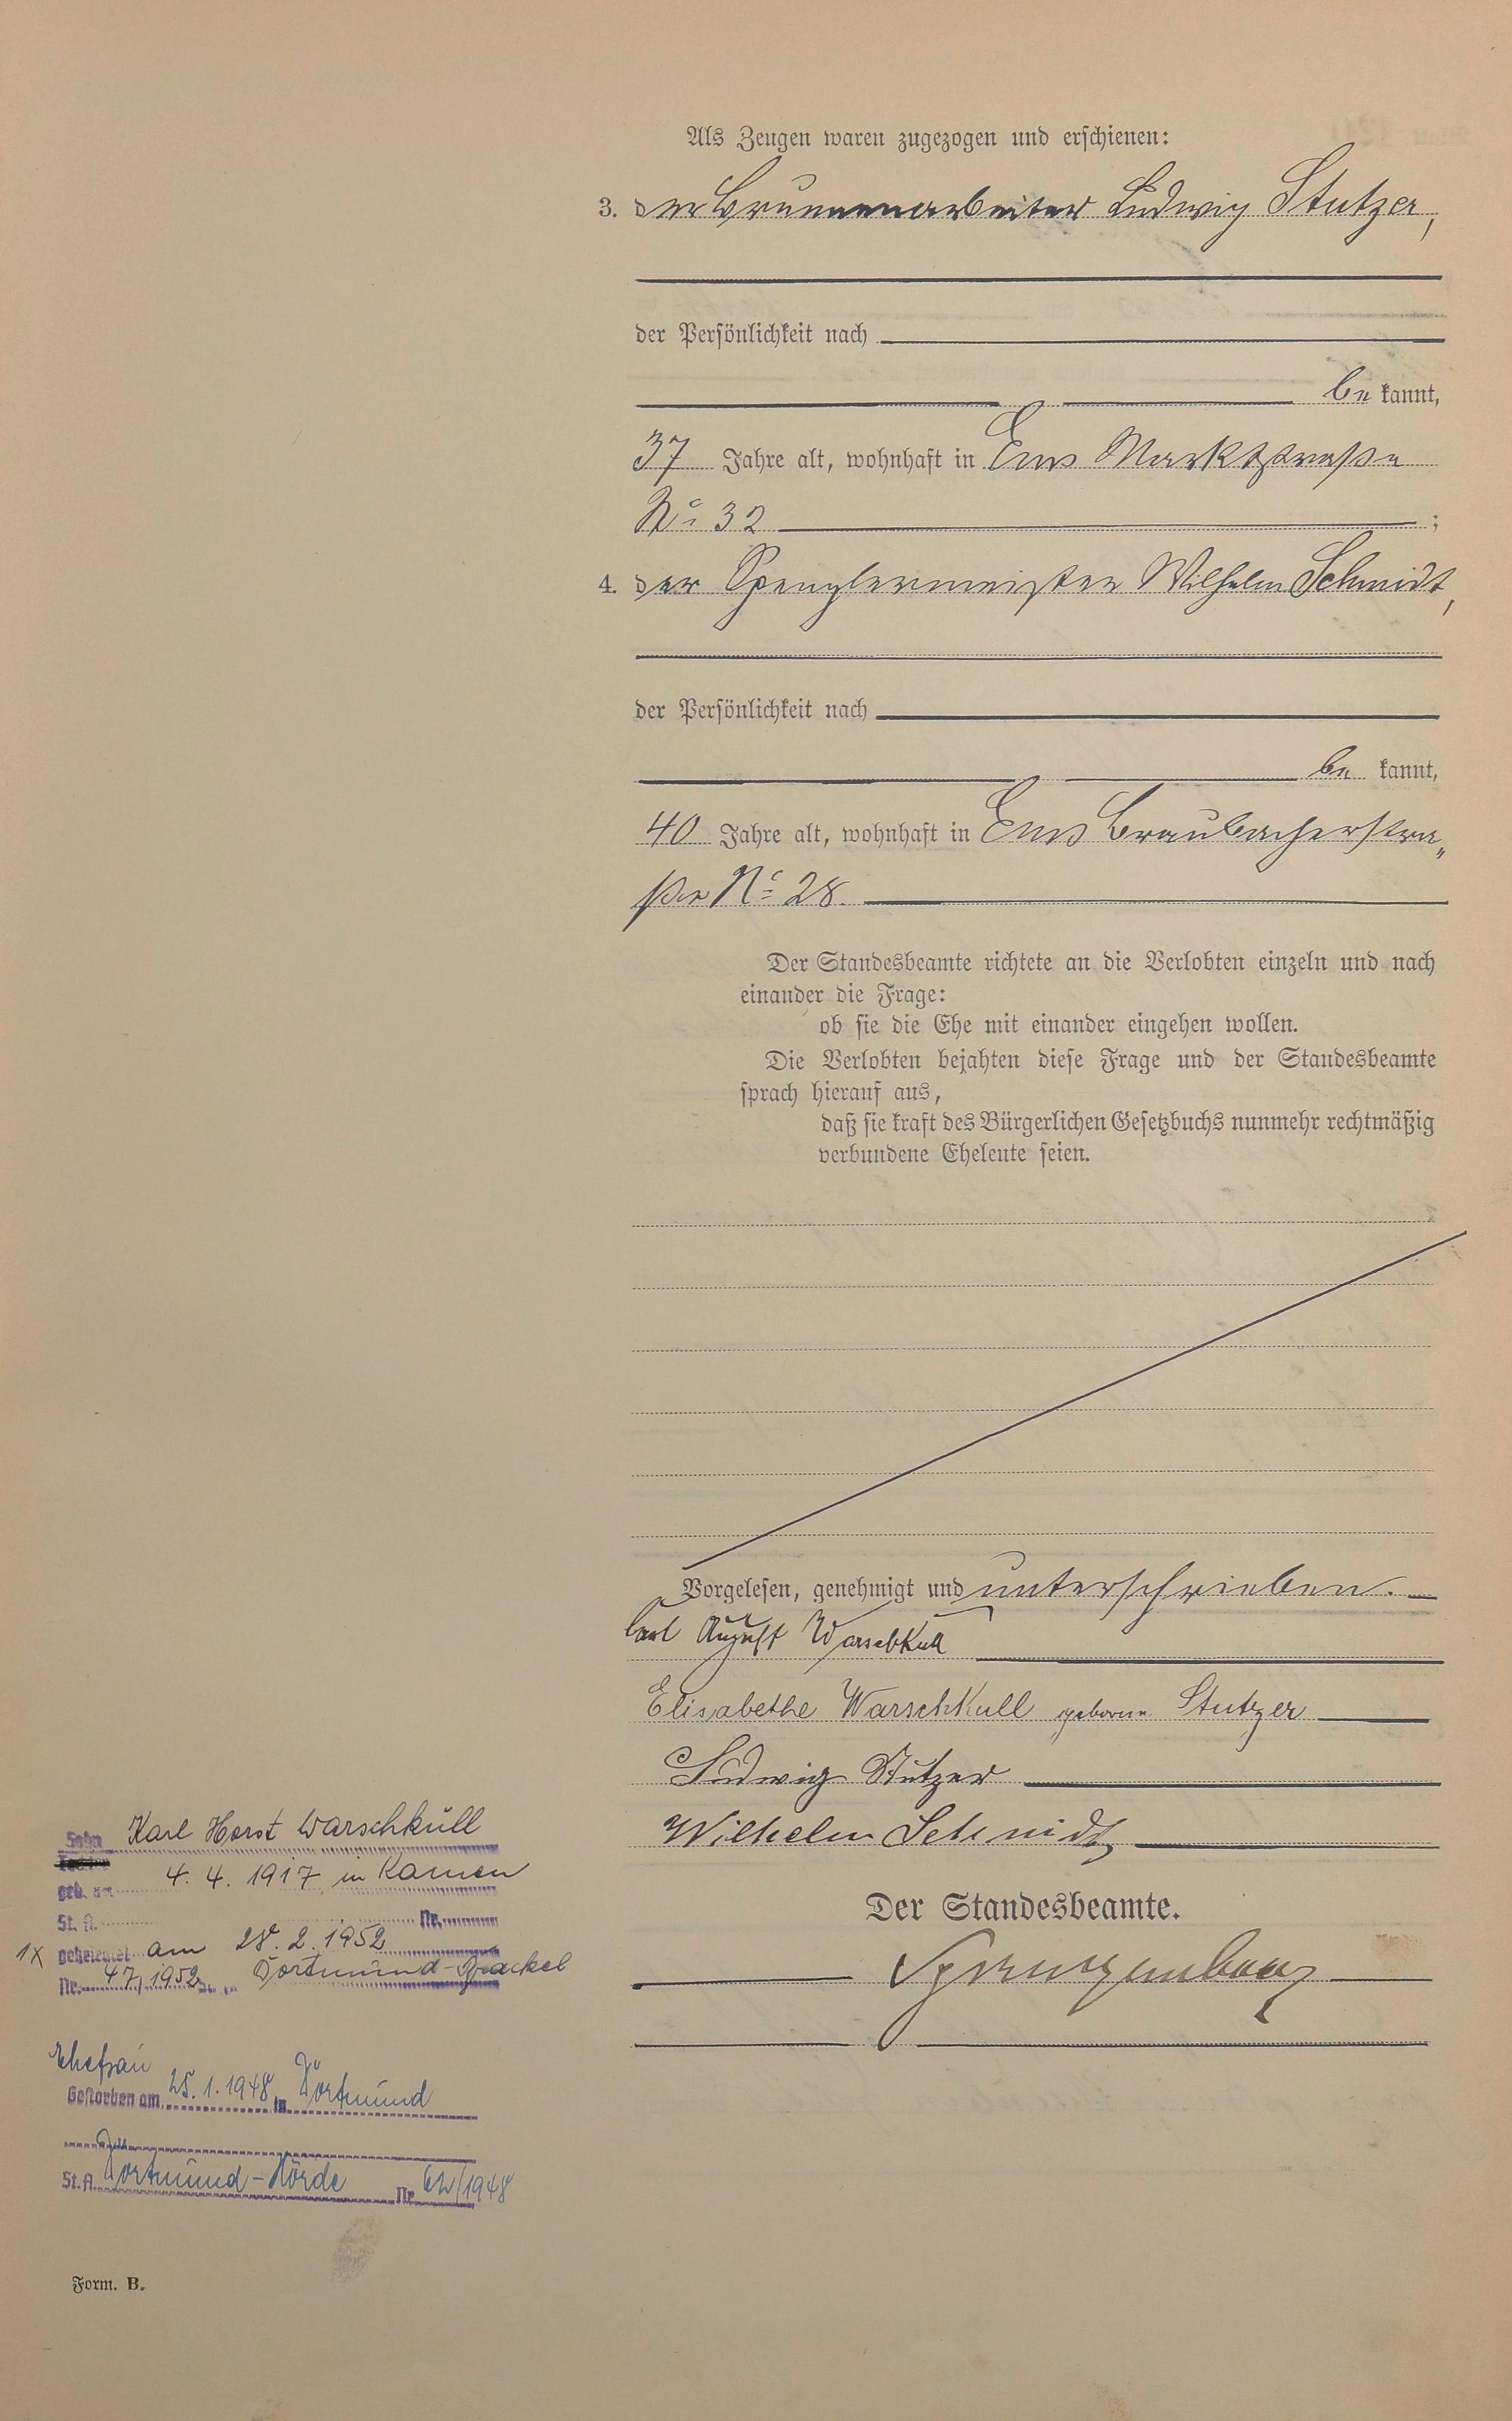 Als Zeugen waren zugezogen und erschienen:
3. der Brunnenarbeiter Ludwig Stutzer,
der Persönlichkeit nach
be kannt,
37 Jahre alt, wohnhaft in Ems Marktstraße
No 32 ;
4. der Spenglermeister Wilhelm Schmidt,
der Persönlichkeit nach
be kannt,
40 Jahre alt, wohnhaft in Ems Braubacherstra„
ße No 28.
Der Standesbeamte richtete an die Verlobten einzeln und nach
einander die Frage:
ob sie die Ehe mit einander eingehen wollen.
Die Verlobten bejahten diese Frage und der Standesbeamte
sprach hierauf aus,
daß sie kraft des Bürgerlichen Gesetzbuchs nunmehr rechtmäßig
verbundene Eheleute seien.
Vorgelesen, genehmigt und unterschrieben.
Carl August Warschkull
Elisabethe Warschkull geborene Stutzer
Ludwig Stutzer
Wilhelm Schmidt
Der Standesbeamte.
Sohn Karl Horst Warschkull
geb. am 4. 4. 1917 in Kamen
St. A. Nr.
1x geheiratet am 28. 2. 1952
Nr. 47/1952 Dortmund-Brackel
Ehefrau
Gestorben am 25. 1. 1948 in Dortmund
St. A. Dortmund-Hörde Nr. 62/1948
Form. B.